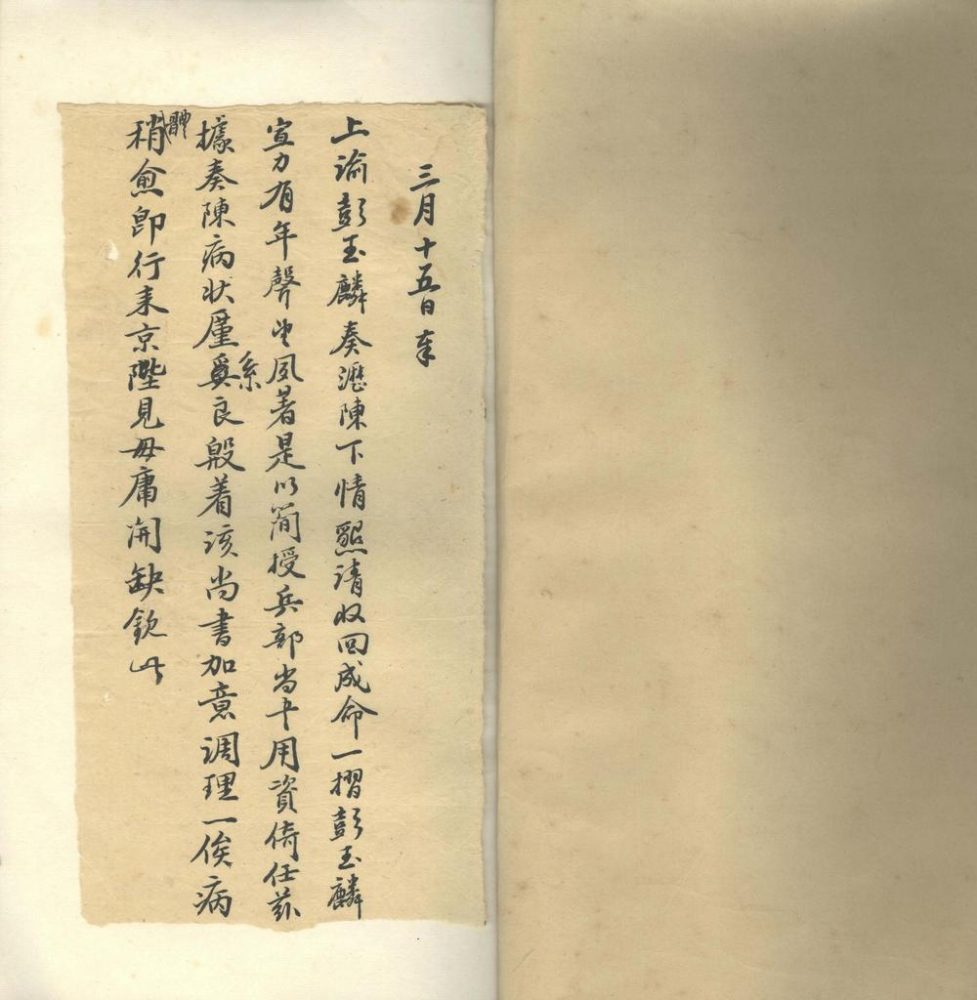 三月十五日奉
上諭彭玉麟奏瀝陳下情懇請收回成命一摺彭玉麟
宣力有年聲望夙著是以簡授兵部尚书用資倚任茲
據奏陳病状厪系良殷着該尚書加意调理一俟病
體稍愈即行来京陛見毋庸開缺欽此